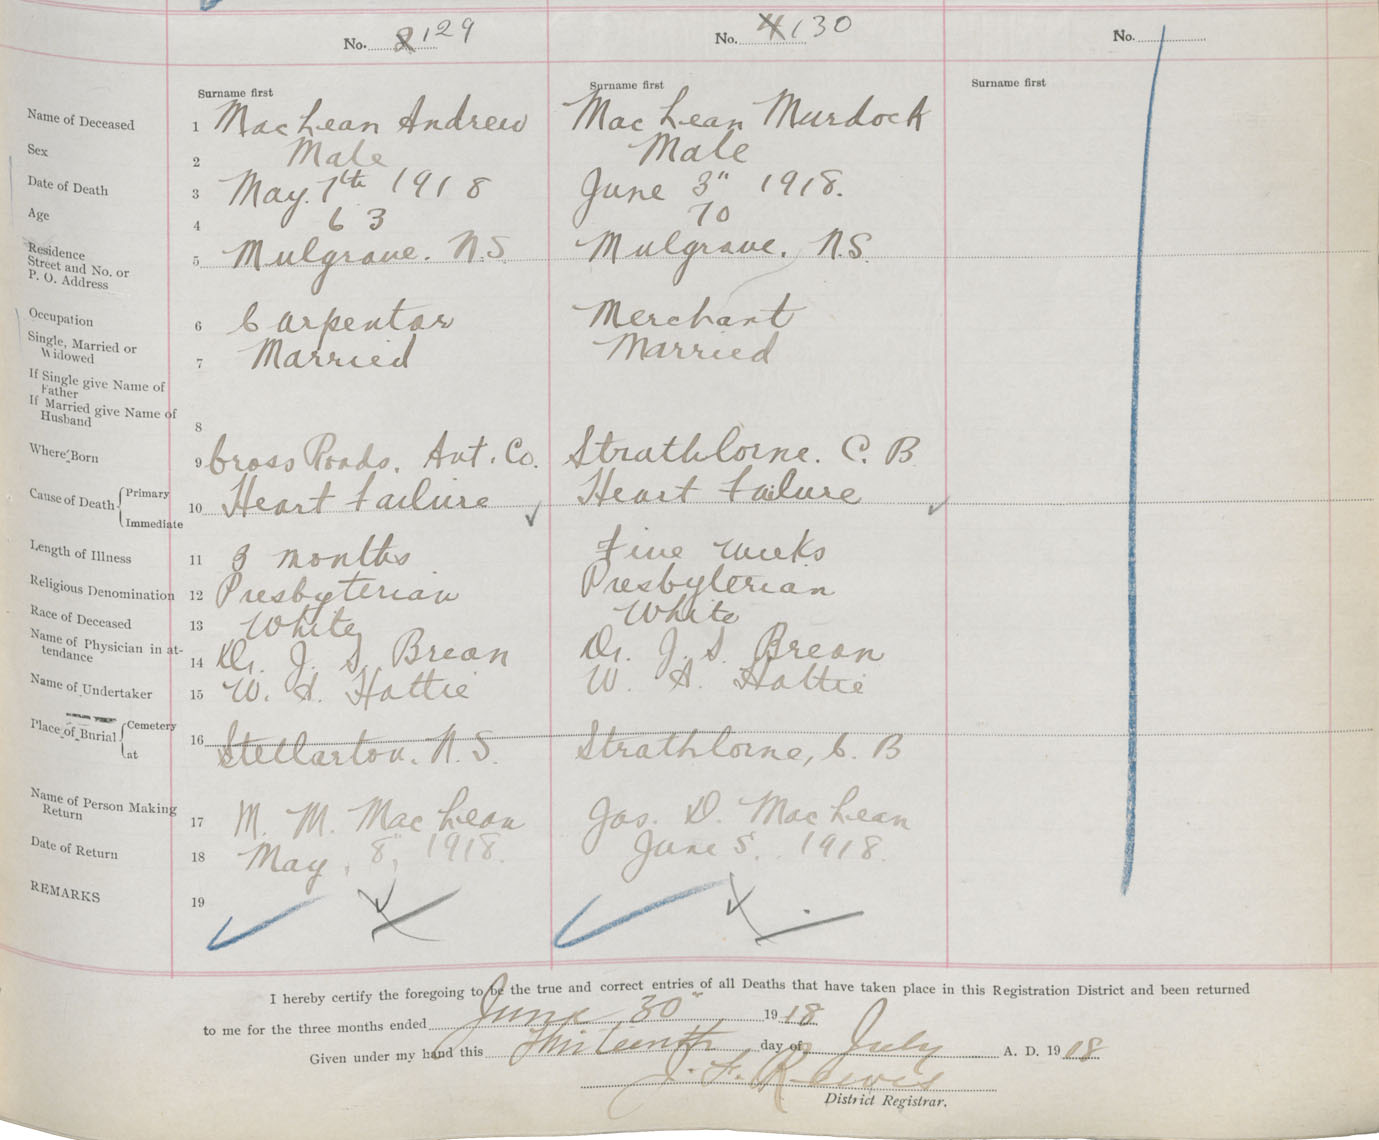 No. 2 129 No. 4 130 No.
Surname first Surname first Surname first
Name of Deceased 1 MacLean Andrew MacLean Murdock
Sex 2 Male Male
Date of Death 3 May. 7th 1918 June 3" 1918.
Age 4 63 70
Residence
Street and No. or
P. O. Address 5 Mulgrave. N.S. Mulgrave. N.S.
Occupation 6 Carpentar Merchant
Single, Married or
Widowed 7 Married Married
If Single give Name of
Father
If Married give Name of
Husband 8
Where Born 9 Cross Roads. Ant. Co. Strathlorne. C. B
Cause of Death Primary
Immediate 10 Heart Failure Heart Failure
Length of Illness 11 3 months Five weeks
Religious Denomination 12 Presbyterian Presbyterian
Race of Deceased 13 White White
Name of Physician in at-
tendance 14 Dr. J. S. Brean Dr. J. S. Brean
Name of Undertaker 15 W. A. Hattie W. A. Hattie
Place of Burial Cemetery
at 16 Stellarton. N.S. Strathlorne, C. B
Name of Person Making
Return 17 M. M. MacLean Jas. D. MacLean
Date of Return 18 May, 8", 1918. June 5. 1918.
REMARKS 19
I hereby certify the foregoing to be the true and correct entries of all Deaths that have taken place in this Registration District and been returned
to me for the three months ended June 30" 1918
Given under my hand this Thirteenth day of July A. D. 1918
J. F.
District Registrar.